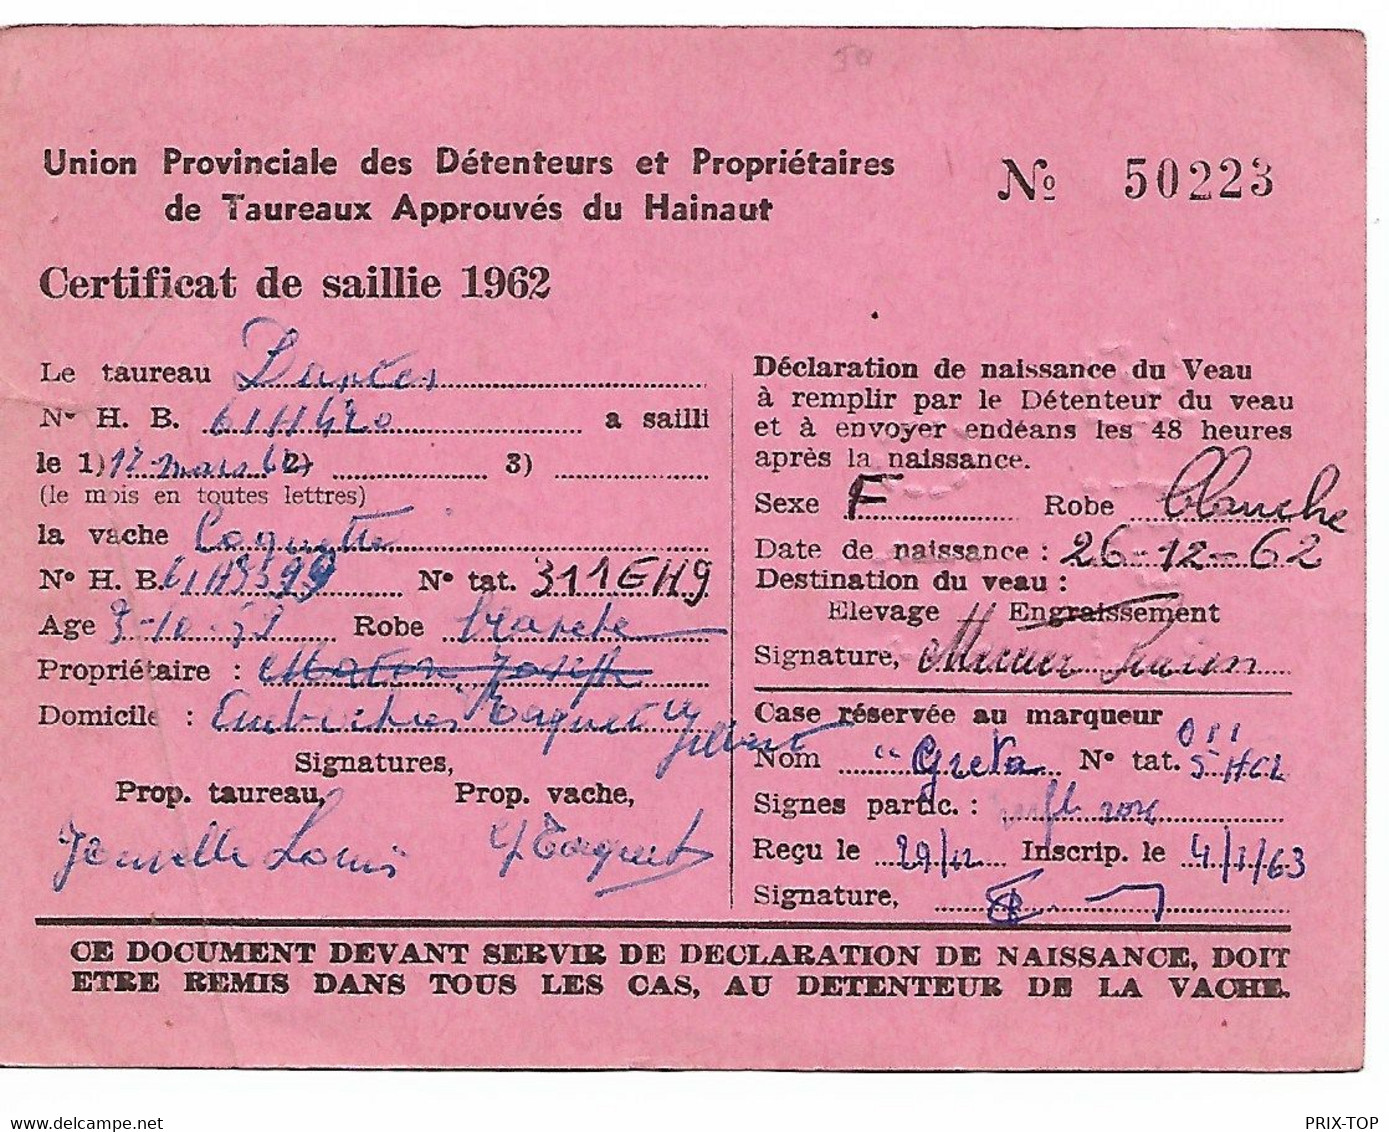 Union Provinciale des Détenteurs et Propriétaires
de Taureaux Approuvés du Hainaut
№ 50223
Certificat de saillie 1962
Le taureau
N° H. B. 61H420 a sailli
le 1) 12 mars 62 2) 3)
(le mois en toutes lettres)
la vache Coquette
N° H. B. 61H3599 N° tat. 311EH9
Age Robe blanche
Propriétaire : Joseph
Domicile : Taquet
Gilbert
Signatures,
Prop. taureau, Prop. vache,
Louis G Taquet
Déclaration de naissance du Veau
à remplir par le Détenteur du veau
et à envoyer endéans les 48 heures
après la naissance.
Sexe F Robe blanche
Date de naissance : 26-12-62
Destination du veau :
Elevage Engraissement
Signature,
Case réservée au marqueur
Nom "Greta N° tat. 5 HCL
Signes partic. :
Reçu le 29/12 Inscrip. le 4/1/63
Signature,
CE DOCUMENT DEVANT SERVIR DE DECLARATION DE NAISSANCE, DOIT
ETRE REMIS DANS TOUS LES CAS, AU DETENTEUR DE LA VACHE.
PRIX-TOP
delcampe.net